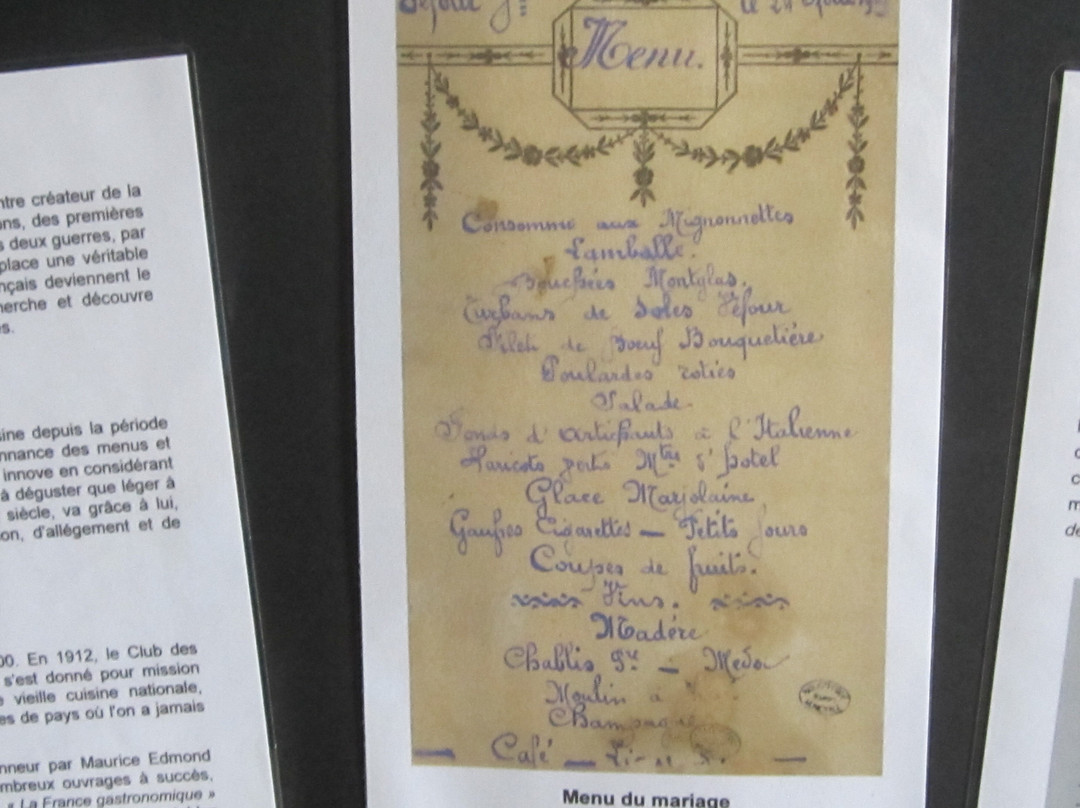 Menu.
Consommé aux Mignonnettes
Lamballe.
Bouchées Montglas.
Turbans de Soles Séjour
Filet de Boeuf Bouquetière
Poulardes roties
Salade
Fonds d'Artichauts à l'Italienne
Haricots verts Mtre d'hotel
Glace Marjolaine
Gaufres Cigarettes — Petits fours
Coupes de fruits.
Vins.
Madère
Chablis — Medoc
Moulin à
Champagne
— Café —
Menu du mariage
ntre créateur de la
ns, des premières
s deux guerres, par
place une véritable
nçais deviennent le
herche et découvre
s.
ine depuis la période
nnance des menus et
innove en considérant
à déguster que léger à
siècle, va grâce à lui,
on, d'allégement et de
00. En 1912, le Club des
s'est donné pour mission
vieille cuisine nationale,
es de pays où l'on a jamais
nneur par Maurice Edmond
mbreux ouvrages à succès,
« La France gastronomique »